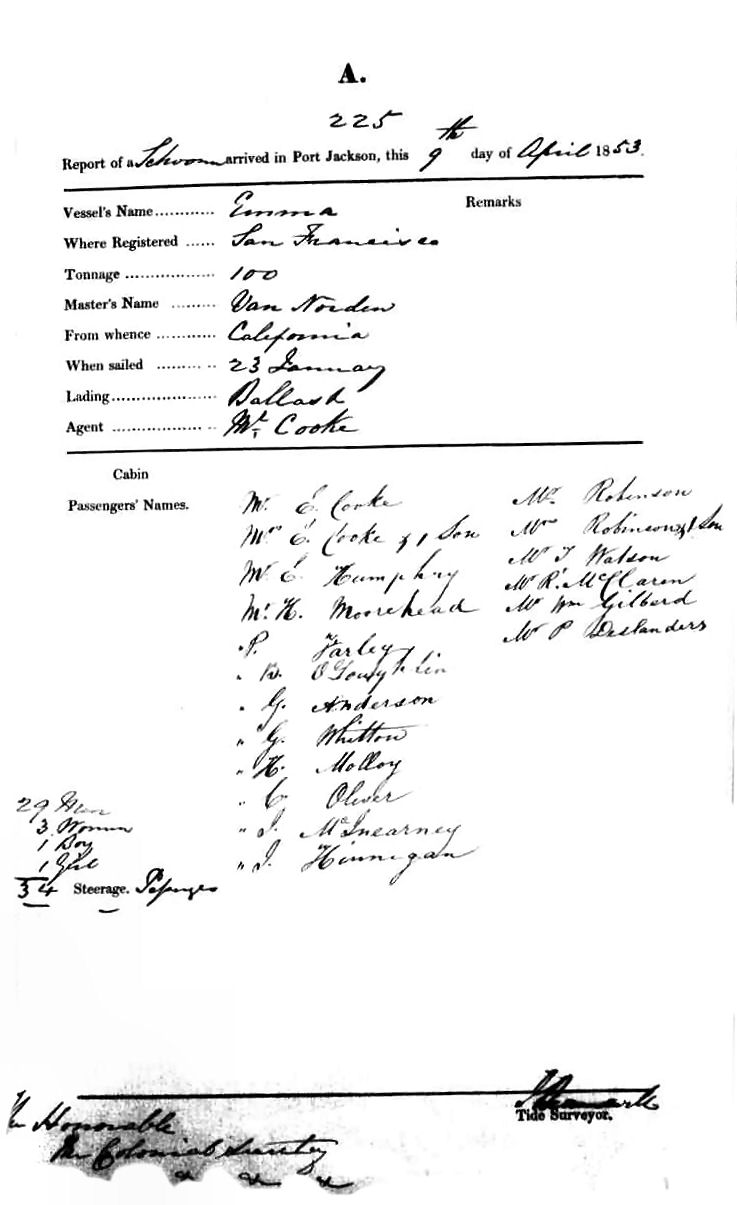 A.
225
Report of a Schooner arrived in Port Jackson, this 9th day of April 1853.
Vessel's Name............ Emma
Remarks
Where Registered ...... San Francisco
Tonnage .................. 100
Master's Name ......... Van Norden
From whence ............ California
When sailed ......... .. 23 January
Lading..................... Ballast
Agent .................. .. Mr. Cooke
Cabin
Passengers' Names.
Mr. E. Cooke
Mrs E. Cooke & 1 Son
Mr E. Humphry
Mr H. Moorehead
" P. Farley
" B. O'Loughlin
" G. Anderson
" G. Whitton
" H. Molloy
" C. Oliver
" J. McInearney
" J. Hinnegan
Mr. Robinson
Mrs Robinson & 1 Son
Mr T Watson
Mr R. McClaren
Mr Wm Gilberd
Mr P Deslanders
29 Men
3 Women
1 Boy
1 Girl
34 Steerage. Passengers
Tide Surveyor.
The Honorable
The Colonial Secretary